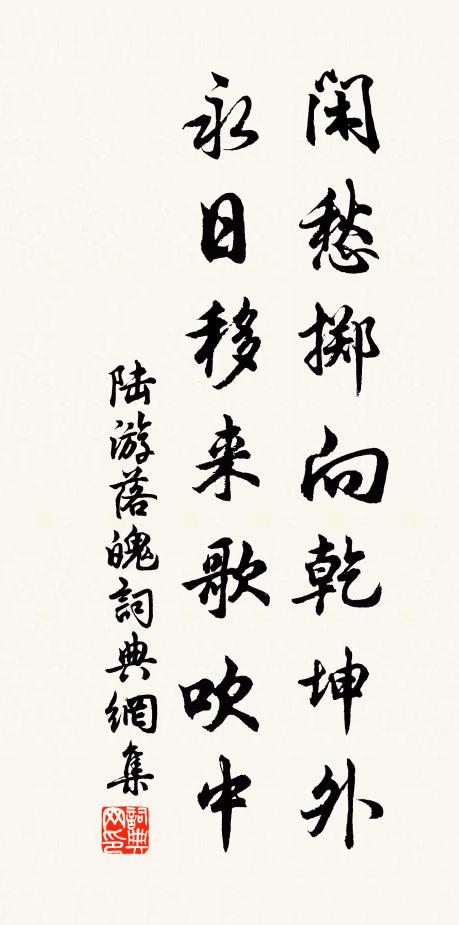 闲愁掷向乾坤外
永日移来歌吹中
陆游落魄詞典網集
詞典网印